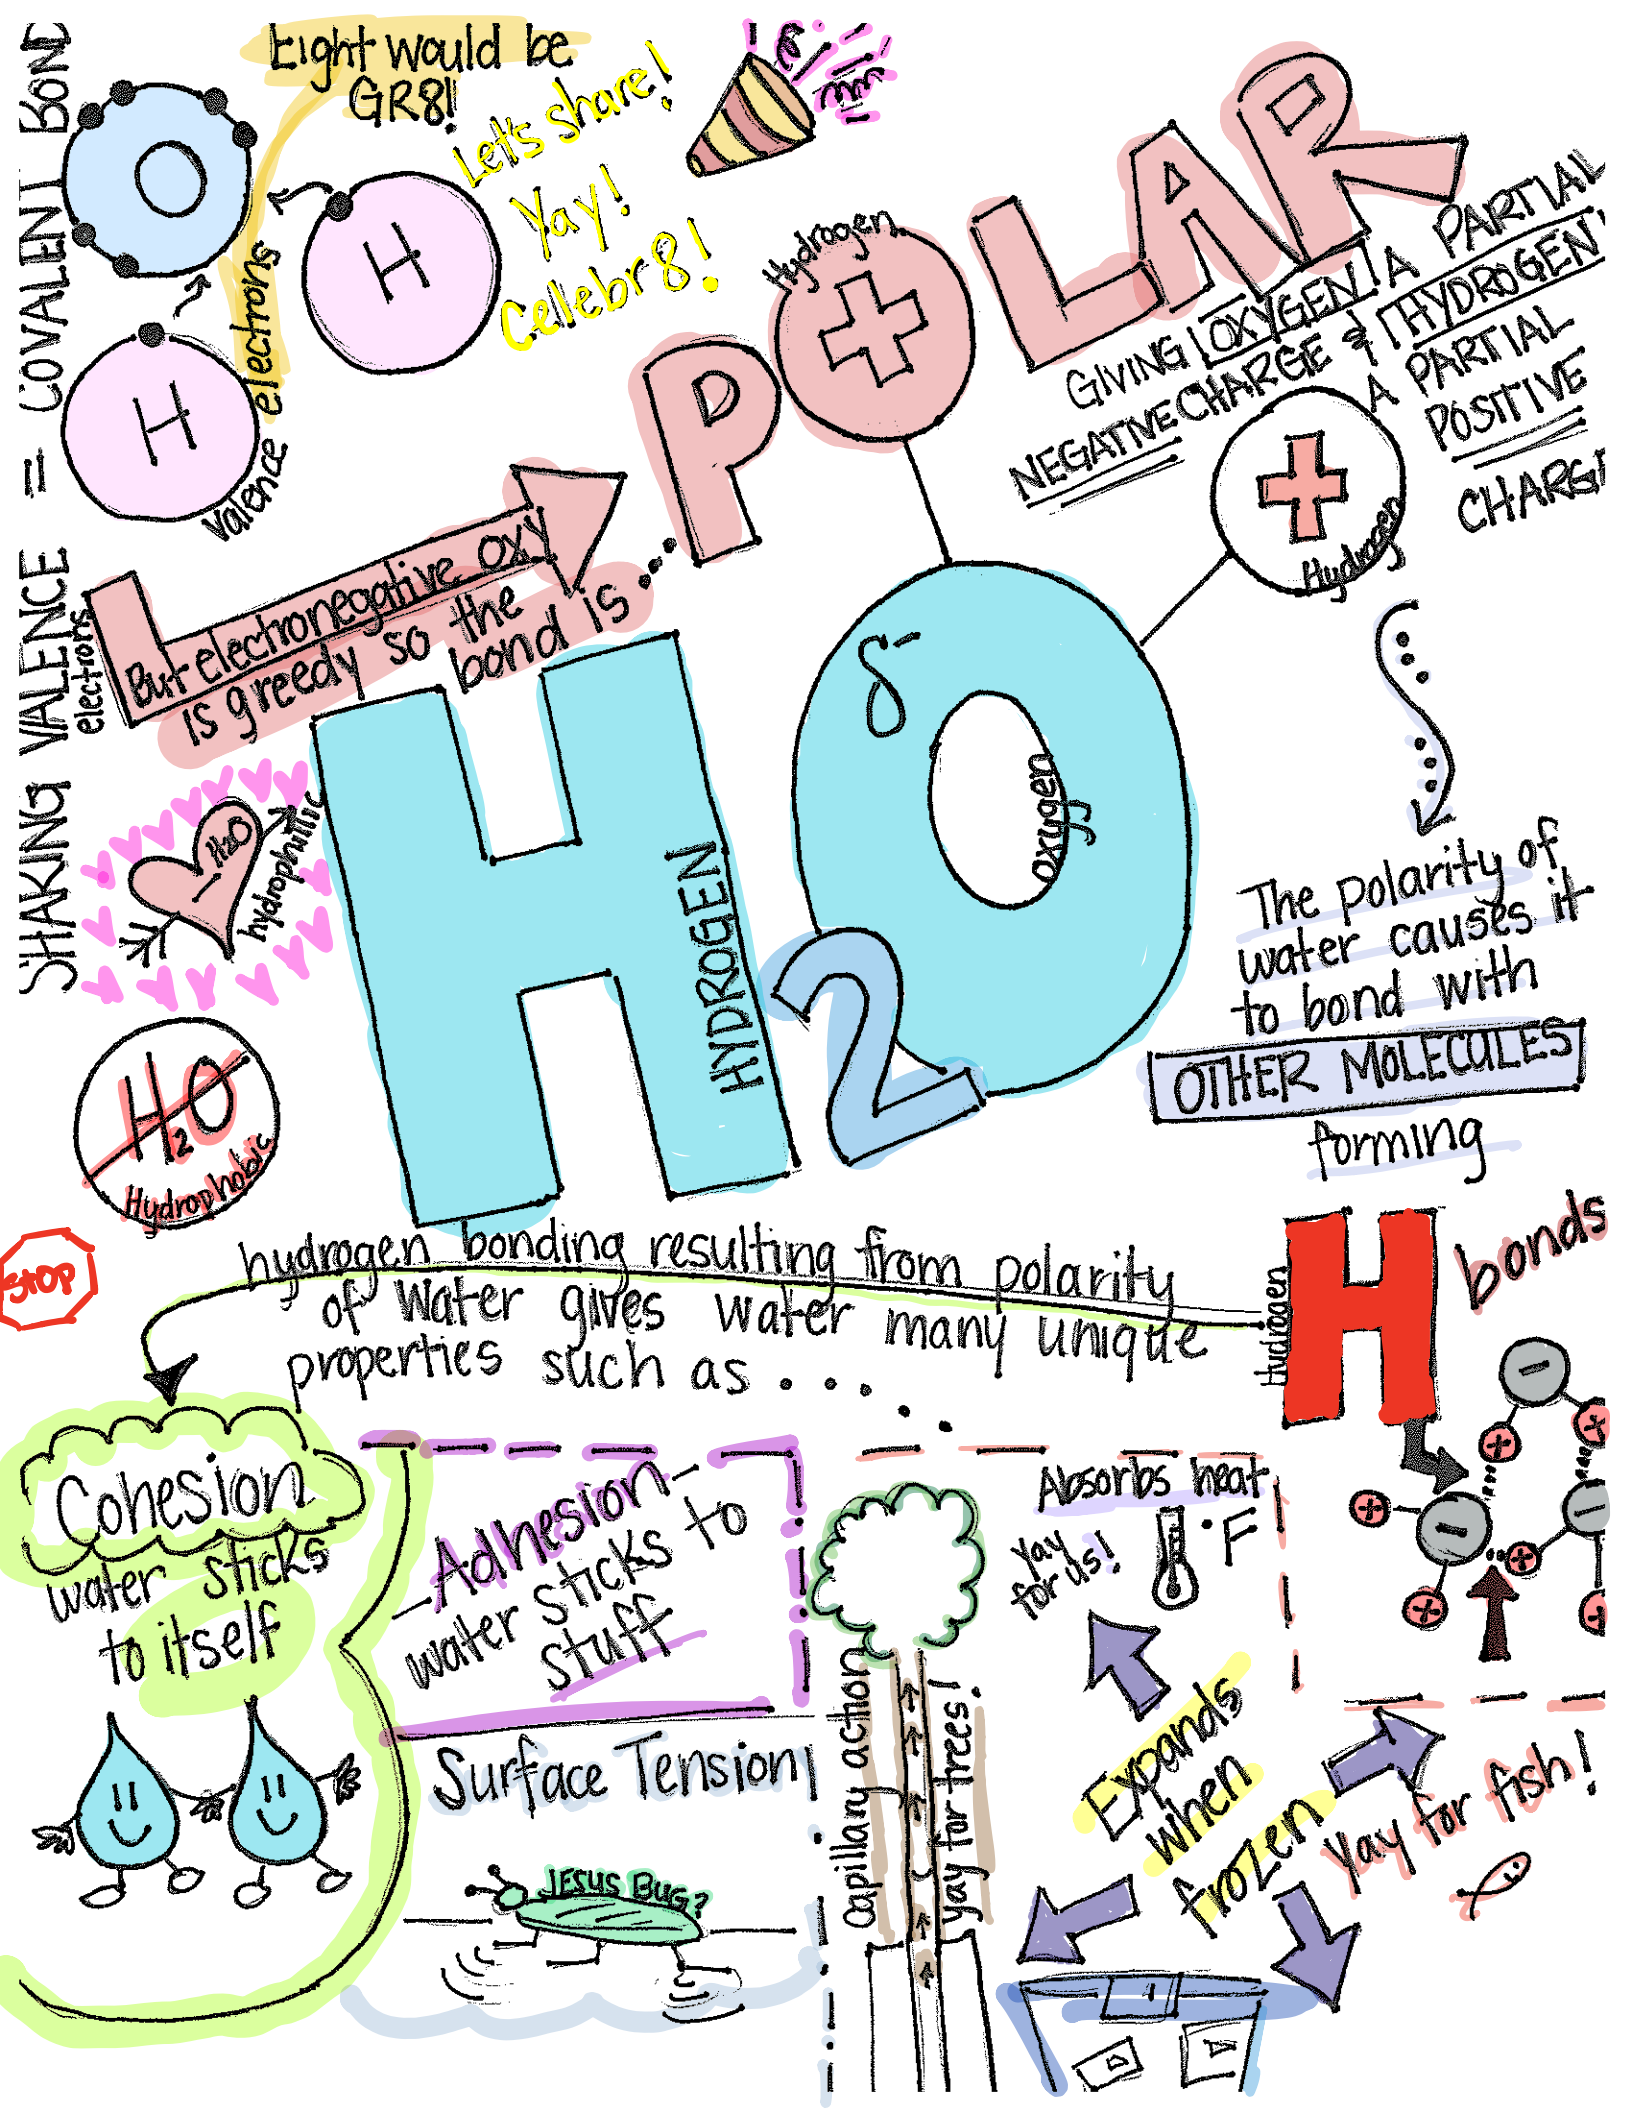 SHAKING VALENCE = COVALENT BOND
electrons
Eight would be
GR8!!
O
H
H
valence electrons
Let's share!
Yay!
Celebr8!
But electronegative oxy
is greedy so the
bond is...
POLAR
Hydrogen
+
GIVING OXYGEN A PARTIAL
NEGATIVE CHARGE & HYDROGEN
A PARTIAL
POSITIVE
CHARGE
+
Hydrogen
H2O
HYDROGEN
δ-
oxygen
H2O
hydrophillic
H2O
Hydrophobic
STOP
The polarity of
water causes it
to bond with
OTHER MOLECULES
forming
H bonds
Hydrogen
hydrogen bonding resulting from polarity
of water gives water many unique
properties such as . . . . .
Cohesion
water sticks
to itself
-Adhesion-
water sticks to
stuff
Surface Tension
JESUS BUG?
capillary action
yay for trees!
Absorbs heat
Yay
for us!
°F
Expands
when
frozen
Yay for fish!
-
+
+
+
-
-
+
+
+